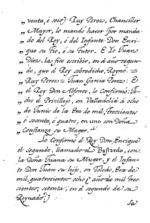 venta, ó seis) Ruy Perez, Chanciller
Mayor, lo mando hacer por manda-
do del Rey, é del Infante Don Enri-
que su Tio, é su Tutor. E Yo Juan
Diez, las fice escribir, en el año segun-
do, que el Rey sobredicho, Reynó.
Ruy Perez = Juan Garcia Perez = E
el Rey Don Alfonso, lo confirmó:
dicho Privillejo, en Valladolid á ocho
de de la Era de mil, trescientos
é sesenta, é quatro, en uno con Doña
Constanza su Muger.
Lo Confirmó el Rey Don Enrique
el segundo, llamado el Bastardo, con
la Doña Juana su Muger, y el Infan-
te Don Juan su hijo, en Toledo, Era de
mil, quatrocientos seis, año de mil tres-
cientos, setenta, en el segundo de su
Reynado;